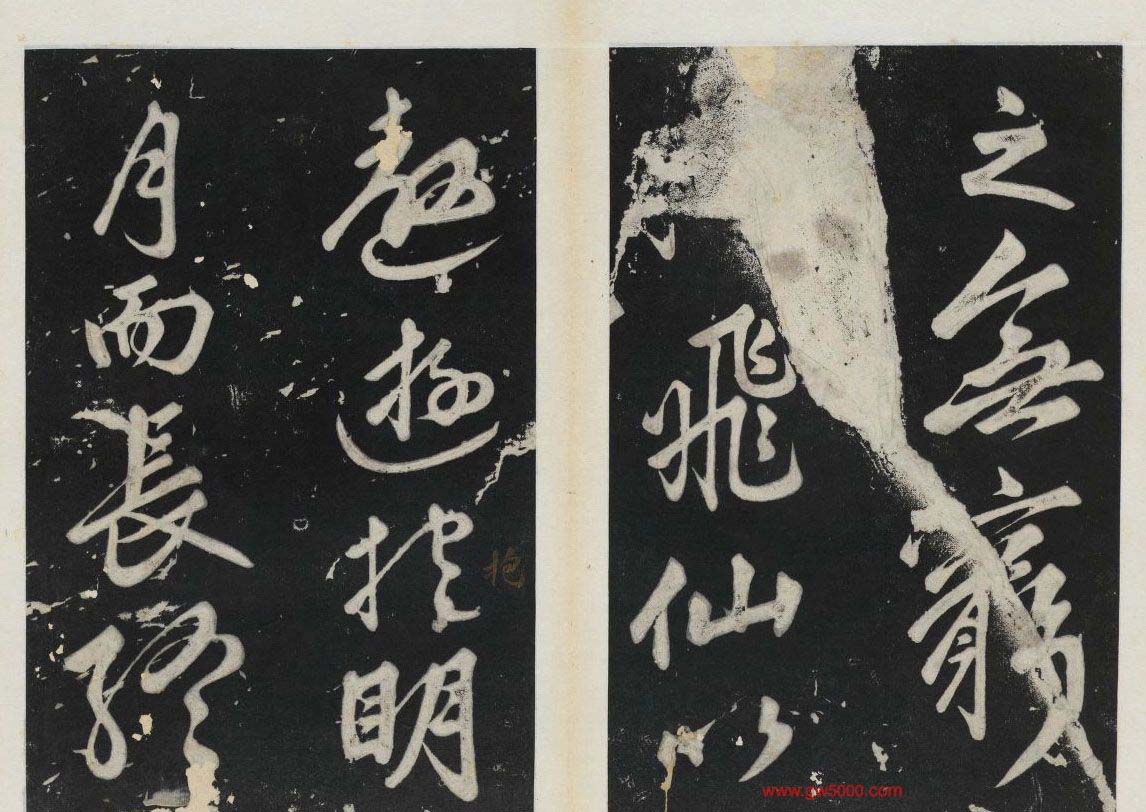 之無窮
飛仙以
遨遊抱明
抱
月而長終
www.gw5000.com